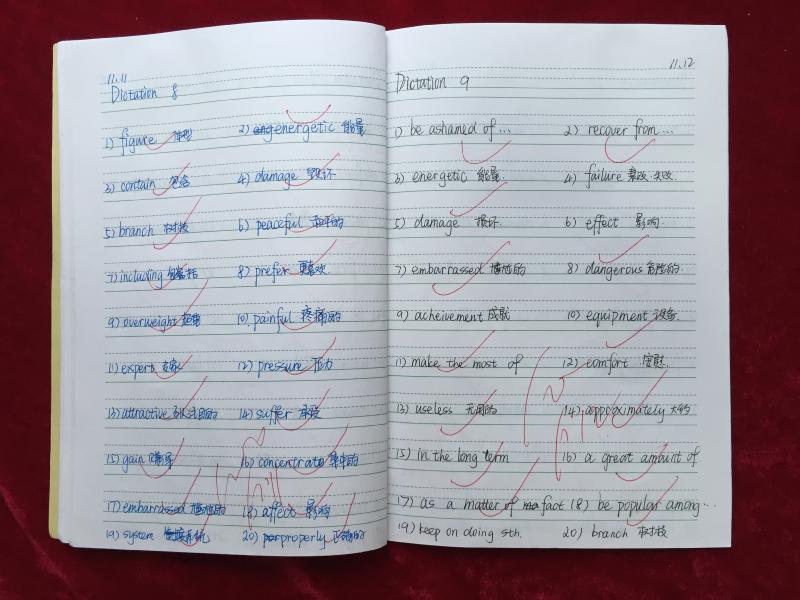 11.11
Dictation 8
1) figure 体型 2) energetic 能量
3) contain 包含 4) damage 毁坏
5) branch 树枝 6) peaceful 和平的
7) including 8) prefer 更喜欢
9) overweight 超重 10) painful 疼痛的
11) expert 专家 12) pressure 压力
13) attractive 吸引的 14) suffer 承受
15) gain 16) concentrate 集中的
17) embarrassed 尴尬的 18) affect 影响
19) system 系统 20) properly 正确的
11.12
Dictation 9
1) be ashamed of... 2) recover from...
3) energetic 能量. 4) failure 失败.
5) damage 损坏. 6) effect 影响.
7) embarrassed 尴尬的 8) dangerous 危险的.
9) acheivement 成就 10) equipment 设备.
11) make the most of 12) comfort 安慰.
13) useless 无用的 14) appproximately 大约
15) in the long term 16) a great amount of
17) as a matter of fact 18) be popular among...
19) keep on doing sth. 20) branch 树枝